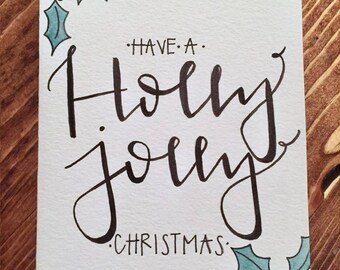 ·HAVE·A·
Holly
jolly
·CHRISTMAS·